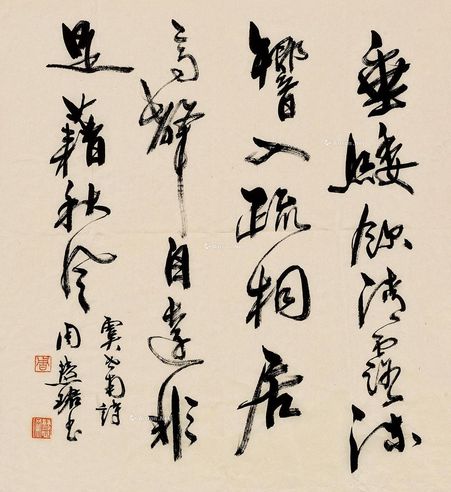 垂緌飲清露流
響入疏桐居
高聲自遠非
是藉秋風
虞世南詩
周慧珺書